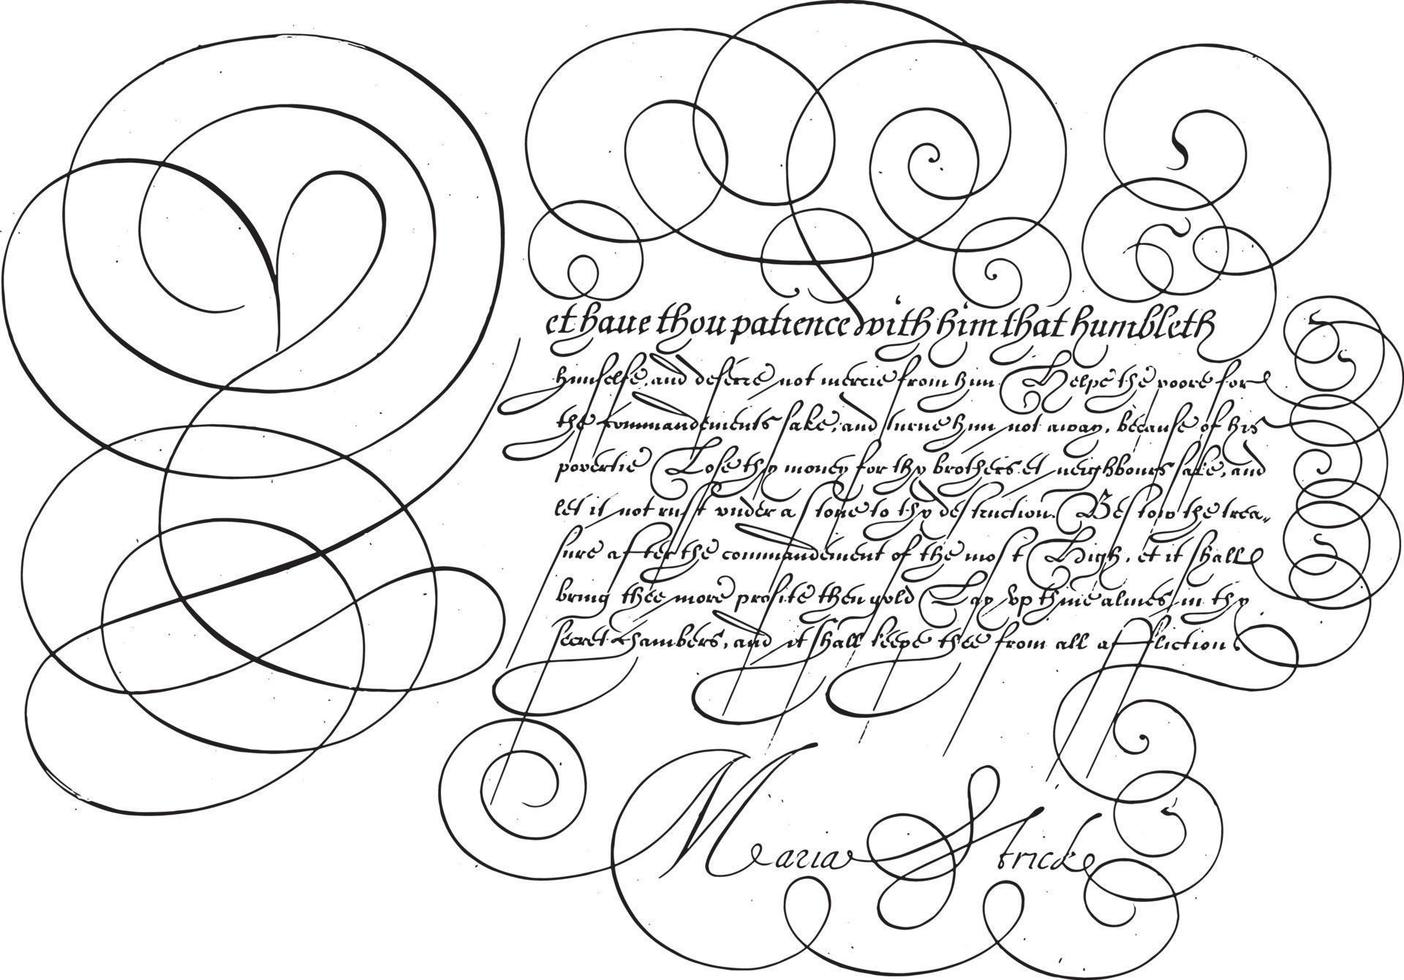 Yet haue thou patience with him that humbleth
himselfe, and deferre not mercie from him. Helpe the poore for
the commandements sake, and turne him not away, because of his
povertie Lose thy money for thy brothers et neighbours sake, and
let it not rust vnder a stone to thy destruction. Bestow the trea-
sure after the commandement of the most High, et it shall
bring thee more profite then gold Lay vp thine almes in thy
secret chambers, and it shall keepe thee from all affliction
Maria Strick